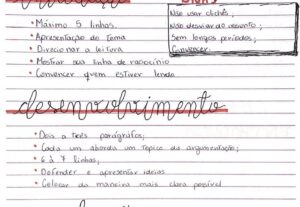 • Máximo 5 linhas.
• Apresentação do Tema
• Direcionar a leitura
• Mostrar sua linha de raciocínio
• Convencer quem estiver lendo
Não usar clichês;
Não desviar do assunto;
Sem longos períodos;
Convencer.
desenvolvimento
• Dois a três parágrafos;
• Cada um aborda um tópico da argumentação;
• 6 à 7 linhas;
• Defender e apresentar ideias
• Colocar da maneira mais clara possível